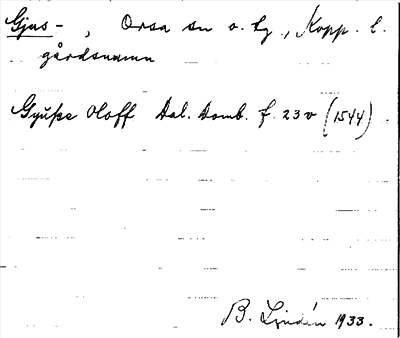 Gjus- , Orsa sn o. tg., Kopp. l.
gårdsnamn
Gyŭsse Oloff Dal. Domb. f. 23 v (1544)
B. Lindén 1933.